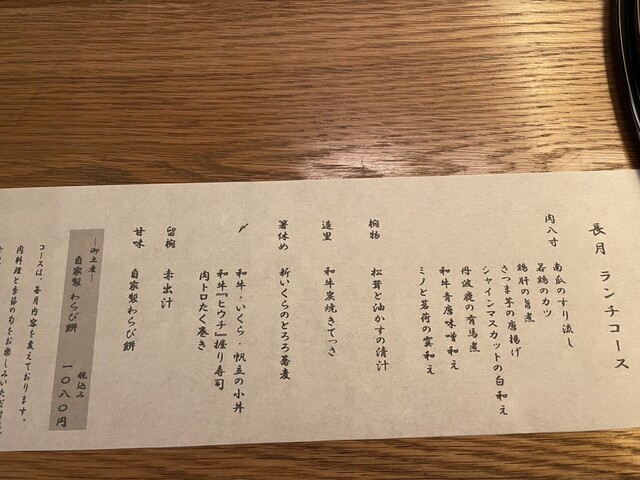 長月 ランチコース
肉八寸 南瓜のすり流し
若鶏のカツ
鶏肝の旨煮
さつま芋の唐揚げ
シャインマスカットの白和え
丹波鹿の有馬煮
和牛青唐味噌和え
ミノと茗荷の霙和え
椀物 松茸と油かすの清汁
造里 和牛炭焼きてっさ
箸休め 新いくらのとろろ蕎麦
〆 和牛・いくら・帆立の小丼
和牛『ヒウチ』握り寿司
肉トロたく巻き
留椀 赤出汁
甘味 自家製わらび餅
―御土産―
自家製わらび餅 税込み 一〇八〇円
コースは、毎月内容を変えております。
肉料理と季節の旬をお楽しみいただけ